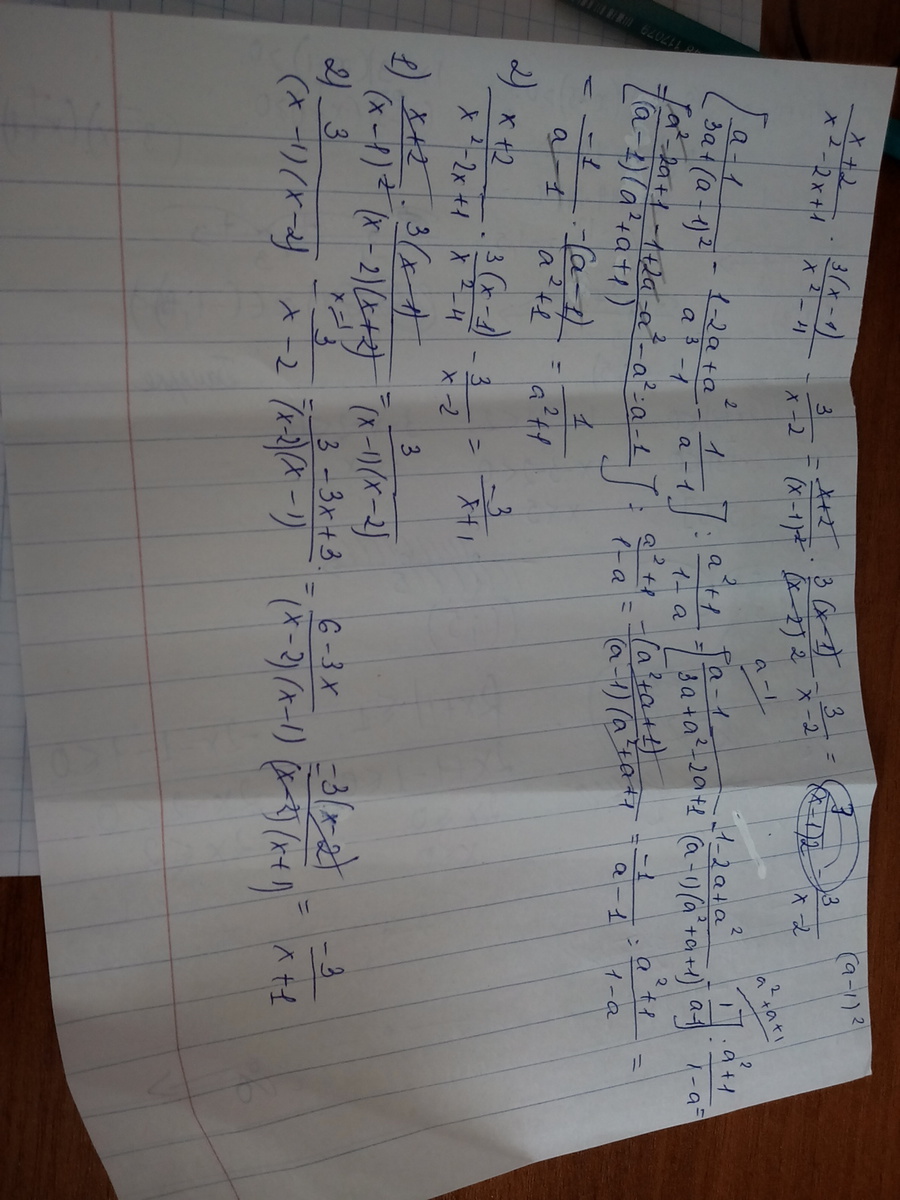 (x+2)/(x²-2x+1) · 3(x-1)/(x²-4) - 3/(x-2) = (x+2)/(x-1)² · 3(x-1)/(x-2)2 - 3/(x-2) = 3/(x-1)2 - 3/(x-2)
(a-1)²
[(a-1)/(3a+(a-1)²) - (1-2a+a²)/(a³-1) - 1/(a-1)] : (a²+1)/(1-a) = [(a-1)/(3a+a²-2a+1) - (1-2a+a²)/((a-1)(a²+a+1)) - 1/(a-1)] : (a²+1)/(1-a) =
a-1
a²+a+1
= [(a²-2a+1-1+2a-a²-a²-a-1)/((a-1)(a²+a+1))] : (a²+1)/(1-a) = -(a²+a+1)/((a-1)(a²+a+1)) = -1/(a-1) : (a²+1)/(1-a) =
= -1/(a-1) · -(a-1)/(a²+1) = 1/(a²+1)
2) (x+2)/(x²-2x+1) · 3(x-1)/(x²-4) - 3/(x-2) = -3/(x+1)
1) (x+2)/(x-1)² · 3(x-1)/((x-2)(x+2)) = 3/((x-1)(x-2))
2) 3/((x-1)(x-2)) - 3/(x-2) = (3-3x+3)/((x-2)(x-1)) = (6-3x)/((x-2)(x-1)) = -3(x-2)/((x-2)(x+1)) = -3/(x+1)